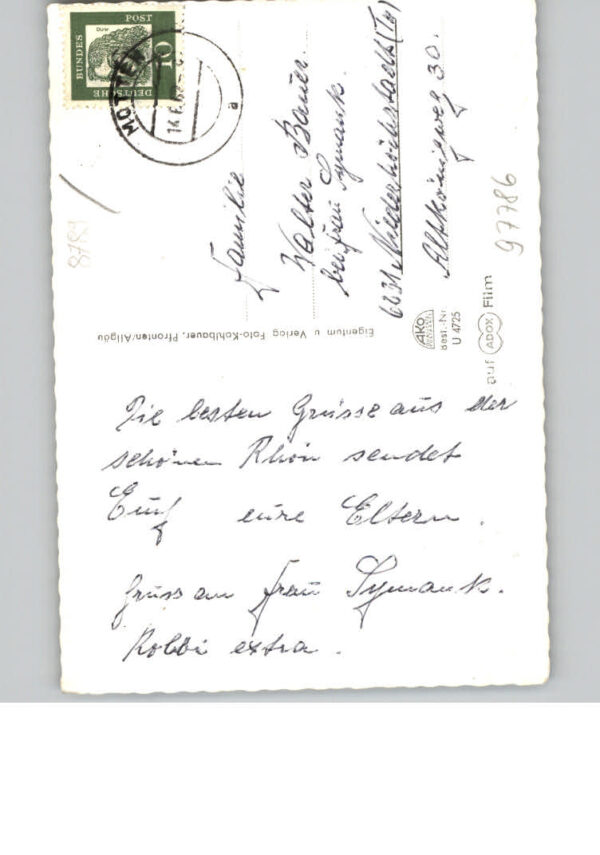 Dürer
DEUTSCHE
BUNDES
POST
10
MOTTEN
a
8789
Familie
Walter Bauer.
bei Frau Symank.
6231 Niederhöchstadt (Ts)
Altkönigweg 30.
97786
Eigentum u. Verlag Foto-Kohlbauer, Pfronten/Allgäu
Ako
Best.-Nr.
U 4725
auf ADOX Film
Die besten Grüsse aus der
schönen Rhön sendet
Euch eure Eltern.
Gruss an Frau Symank.
Robbi extra.